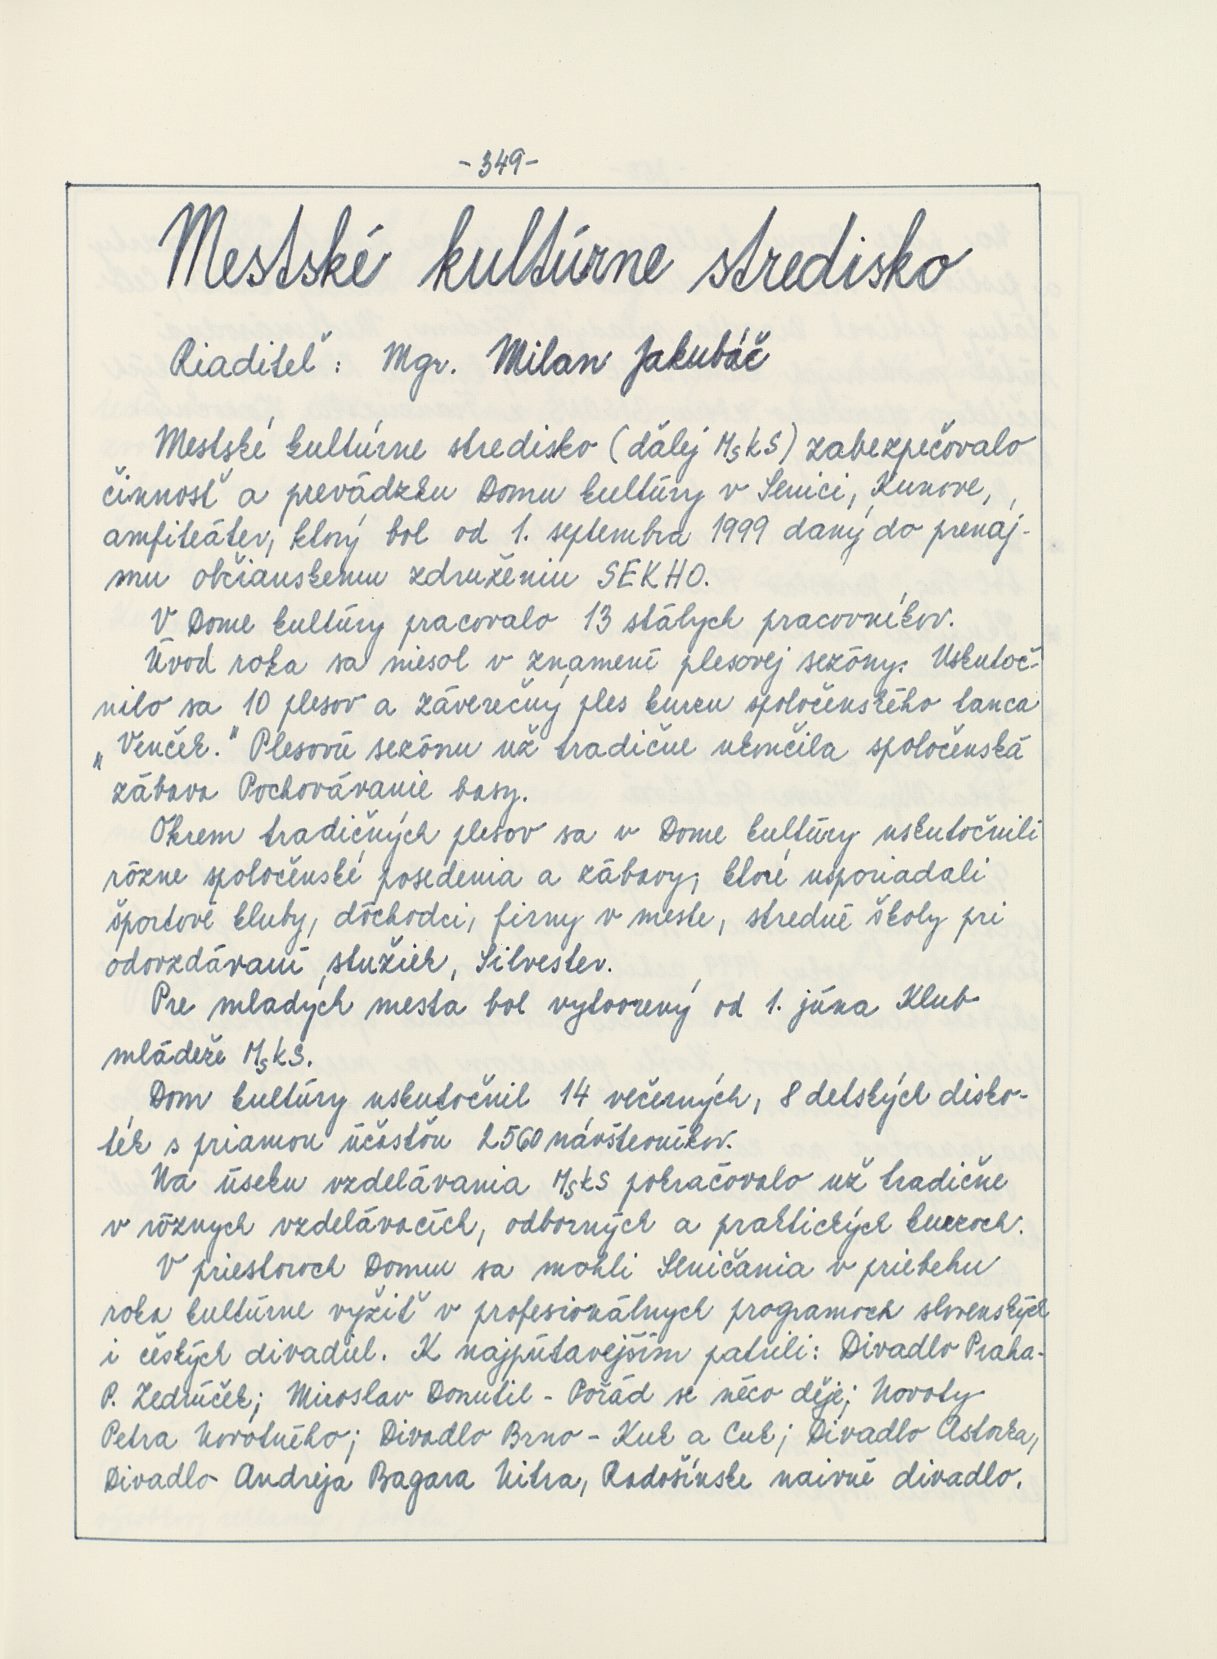 -349-
Mestské kultúrne stredisko
Riaditeľ: Mgr. Milan Jakubáč
Mestské kultúrne stredisko (ďalej MsKS) zabezpečovalo
činnosť a prevádzku Domu kultúry v Senici, Kunove,
amfiteáter, ktorý bol od 1. septembra 1999 daný do prenáj-
mu občianskemu združeniu SEKHO.
V Dome kultúry pracovalo 13 stálych pracovníkov.
Úvod roka sa niesol v znamení plesovej sezóny. Uskutoč-
nilo sa 10 plesov a záverečný ples kurzu spoločenského tanca
„Venček." Plesovú sezónu už tradične ukončila spoločenská
zábava Pochovávanie basy.
Okrem tradičných plesov sa v Dome kultúry uskutočnili
rôzne spoločenské posedenia a zábavy, ktoré usporiadali
športové kluby, dôchodci, firmy v meste, stredné školy pri
odovzdávaní stužiek, Silvester.
Pre mladých mesta bol vytvorený od 1. júna Klub
mládeže MsKS.
Dom kultúry uskutočnil 14 večerných, 8 detských disko-
ték s priamou účasťou 2560 návštevníkov.
Na úseku vzdelávania MsKS pokračovalo už tradične
v rôznych vzdelávacích, odborných a praktických kurzoch.
V priestoroch Domu sa mohli Seničania v priebehu
roka kultúrne vyžiť v profesionálnych programoch slovenských
i českých divadiel. K najpútavejším patrili: Divadlo Praha-
P. Zedníček; Miroslav Donutil - Pořád se něco děje; Novoty
Petra Novotného; Divadlo Brno - Kuk a Cuk; Divadlo Astorka,
Divadlo Andreja Bagara Nitra, Radošinske naivné divadlo.